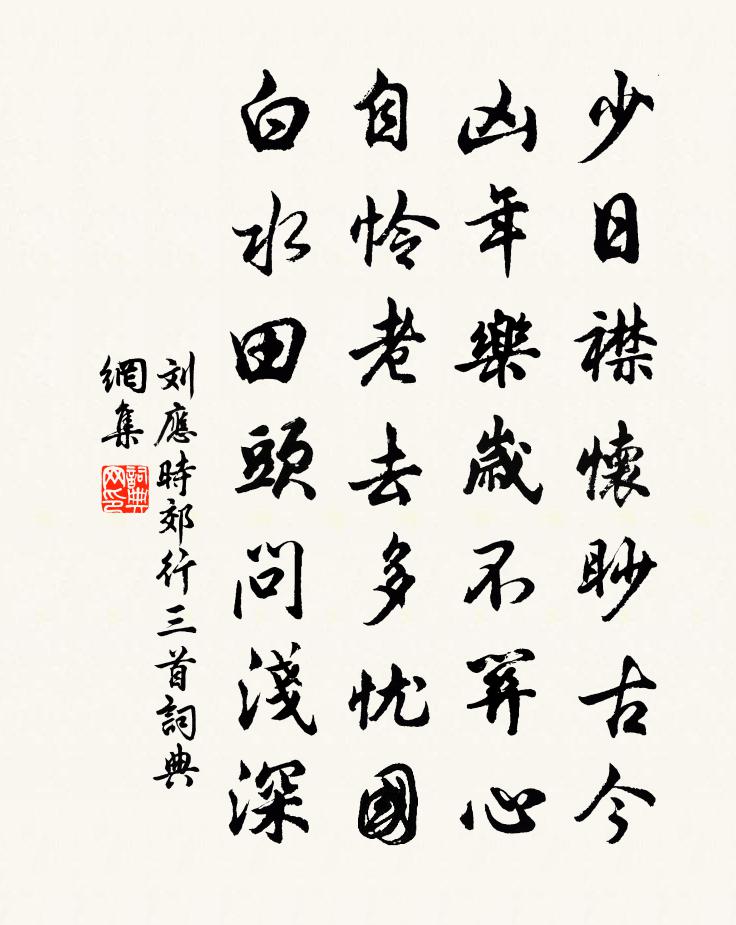 少日襟懷眇古今
凶年樂歲不關心
自怜老去多忧國
白水田頭問淺深
刘應時郊行三首詞典
網集
詞典網印